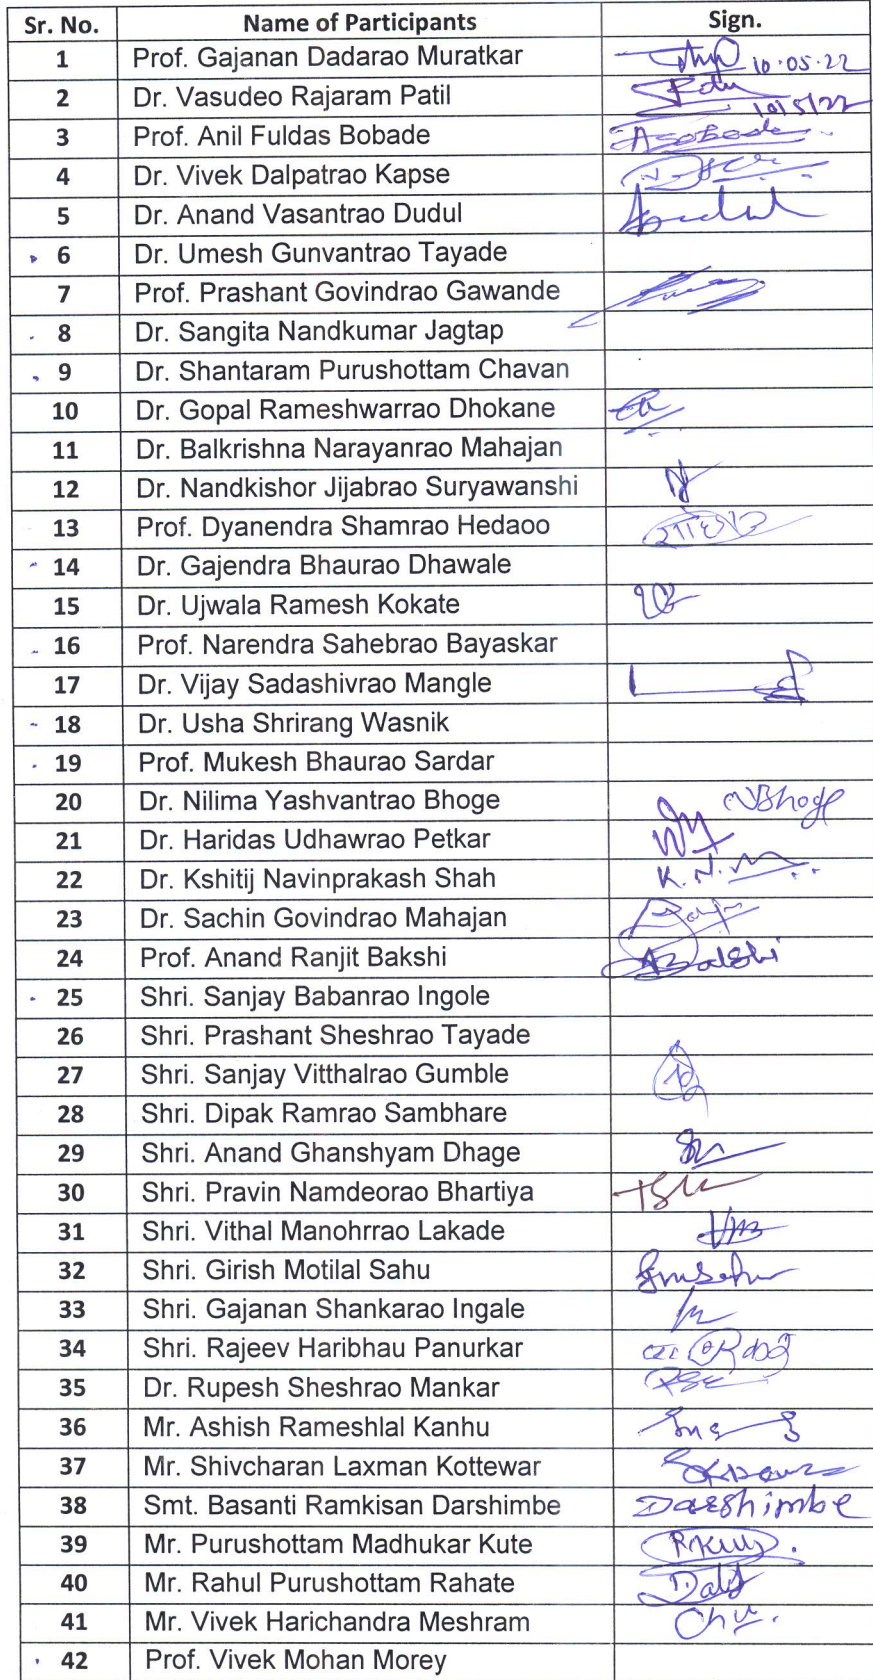 Sr. No. Name of Participants Sign.
1 Prof. Gajanan Dadarao Muratkar 10.05.22
2 Dr. Vasudeo Rajaram Patil 10/5/22
3 Prof. Anil Fuldas Bobade
4 Dr. Vivek Dalpatrao Kapse
5 Dr. Anand Vasantrao Dudul
6 Dr. Umesh Gunvantrao Tayade
7 Prof. Prashant Govindrao Gawande
8 Dr. Sangita Nandkumar Jagtap
9 Dr. Shantaram Purushottam Chavan
10 Dr. Gopal Rameshwarrao Dhokane
11 Dr. Balkrishna Narayanrao Mahajan
12 Dr. Nandkishor Jijabrao Suryawanshi
13 Prof. Dyanendra Shamrao Hedaoo
14 Dr. Gajendra Bhaurao Dhawale
15 Dr. Ujwala Ramesh Kokate
16 Prof. Narendra Sahebrao Bayaskar
17 Dr. Vijay Sadashivrao Mangle
18 Dr. Usha Shrirang Wasnik
19 Prof. Mukesh Bhaurao Sardar
20 Dr. Nilima Yashvantrao Bhoge NBhoge
21 Dr. Haridas Udhawrao Petkar
22 Dr. Kshitij Navinprakash Shah
23 Dr. Sachin Govindrao Mahajan
24 Prof. Anand Ranjit Bakshi ABakshi
25 Shri. Sanjay Babanrao Ingole
26 Shri. Prashant Sheshrao Tayade
27 Shri. Sanjay Vitthalrao Gumble
28 Shri. Dipak Ramrao Sambhare
29 Shri. Anand Ghanshyam Dhage
30 Shri. Pravin Namdeorao Bhartiya
31 Shri. Vithal Manohrrao Lakade
32 Shri. Girish Motilal Sahu
33 Shri. Gajanan Shankarao Ingale
34 Shri. Rajeev Haribhau Panurkar
35 Dr. Rupesh Sheshrao Mankar
36 Mr. Ashish Rameshlal Kanhu
37 Mr. Shivcharan Laxman Kottewar
38 Smt. Basanti Ramkisan Darshimbe Darshimbe
39 Mr. Purushottam Madhukar Kute
40 Mr. Rahul Purushottam Rahate
41 Mr. Vivek Harichandra Meshram
42 Prof. Vivek Mohan Morey